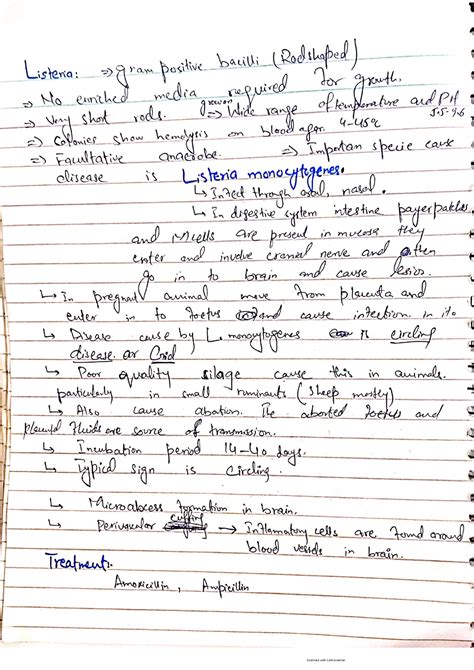 Listeria: ⇒ gram positive bacilli (Rod shaped)
⇒ No enriched media required for growth.
⇒ Very short rods. ⇒ grown Wide range of temperature and PH
⇒ Colonies show hemolysis on blood agar. 4-45c 5.5-9.6
⇒ Facultative anaerobe. ⇒ Importan specie cause
disease is Listeria monocytogenes.
↳ Infect through oral, nasal.
↳ In digestive system intestine payerpatches,
and Mcells are present in mucosa they
enter and involve cranial nerve and then
go in to brain and cause lesios.
↳ In pregnant animal move from placenta and
enter in to foetus and cause infection. in it
↳ Disease cause by L. monocytogenes is circling
disease. or
↳ Poor quality silage cause this in animals.
particularly in small ruminants (sheep mostly)
↳ Also cause abortion. The aborted foetus and
placental fluids are source of transmission.
↳ Incubation period 14-40 days.
↳ Typical sign is Circling.
↳ Microabcess formation in brain.
↳ Perivascular cuffing → Inflamatory cells are found around
blood vessels in brain.
Treatment:
Amoxicillin, Ampicillin
Scanned with CamScanner